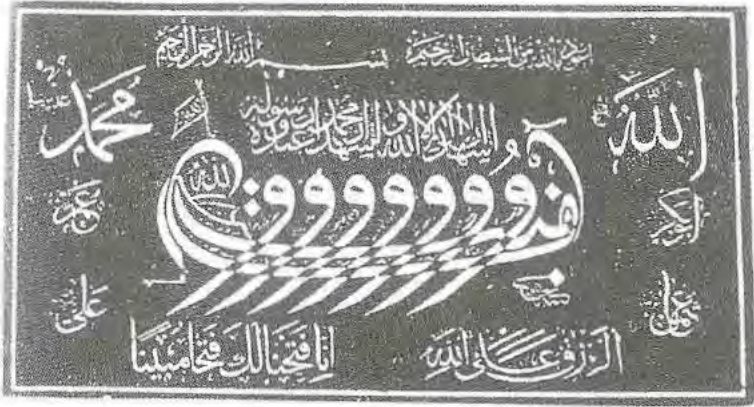 اعوذ بالله من الشيطان الرجيم
بسم الله الرحمن الرحيم
الله
محمد
اشهد ان لا اله الا الله واشهد ان محمدا عبده ورسوله
الله
و و و و و و
ابوبكر
عمر
عثمان
علي
الرزق على الله
انا فتحنا لك فتحا مبينا